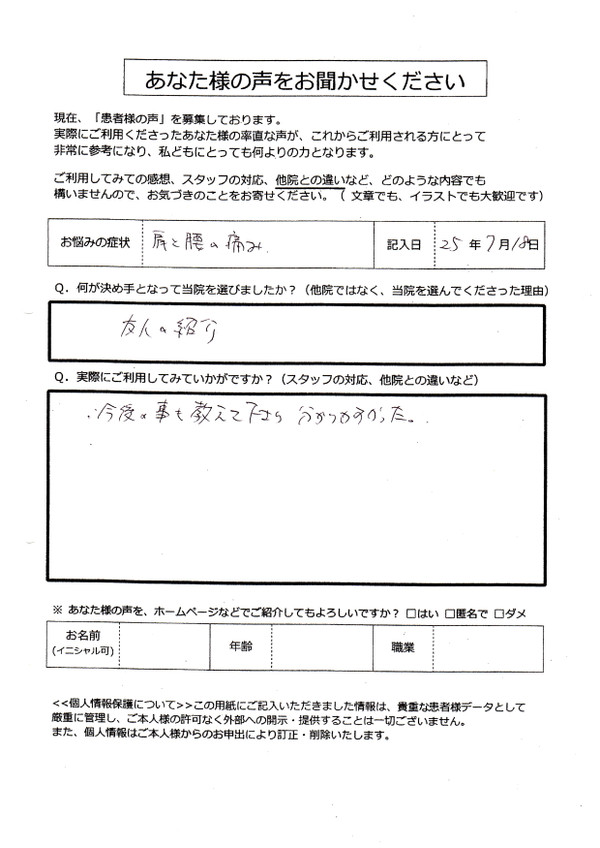 あなた様の声をお聞かせください
現在、「患者様の声」を募集しております。
実際にご利用くださったあなた様の率直な声が、これからご利用される方にとって
非常に参考になり、私どもにとっても何よりの力となります。
ご利用してみての感想、スタッフの対応、他院との違いなど、どのような内容でも
構いませんので、お気づきのことをお寄せください。（ 文章でも、イラストでも大歓迎です）
お悩みの症状 肩と腰の痛み. 記入日 25 年 7 月 18日
Q. 何が決め手となって当院を選びましたか？（他院ではなく、当院を選んでくださった理由）
友人の紹介
Q. 実際にご利用してみていかがですか？（スタッフの対応、他院との違いなど）
今後の事も教えて下さり 分かりやすかった。
※ あなた様の声を、ホームページなどでご紹介してもよろしいですか？ □はい □匿名で □ダメ
お名前 年齢 職業
(イニシャル可)
<<個人情報保護について>>この用紙にご記入いただきました情報は、貴重な患者様データとして
厳重に管理し、ご本人様の許可なく外部への開示・提供することは一切ございません。
また、個人情報はご本人様からのお申出により訂正・削除いたします。